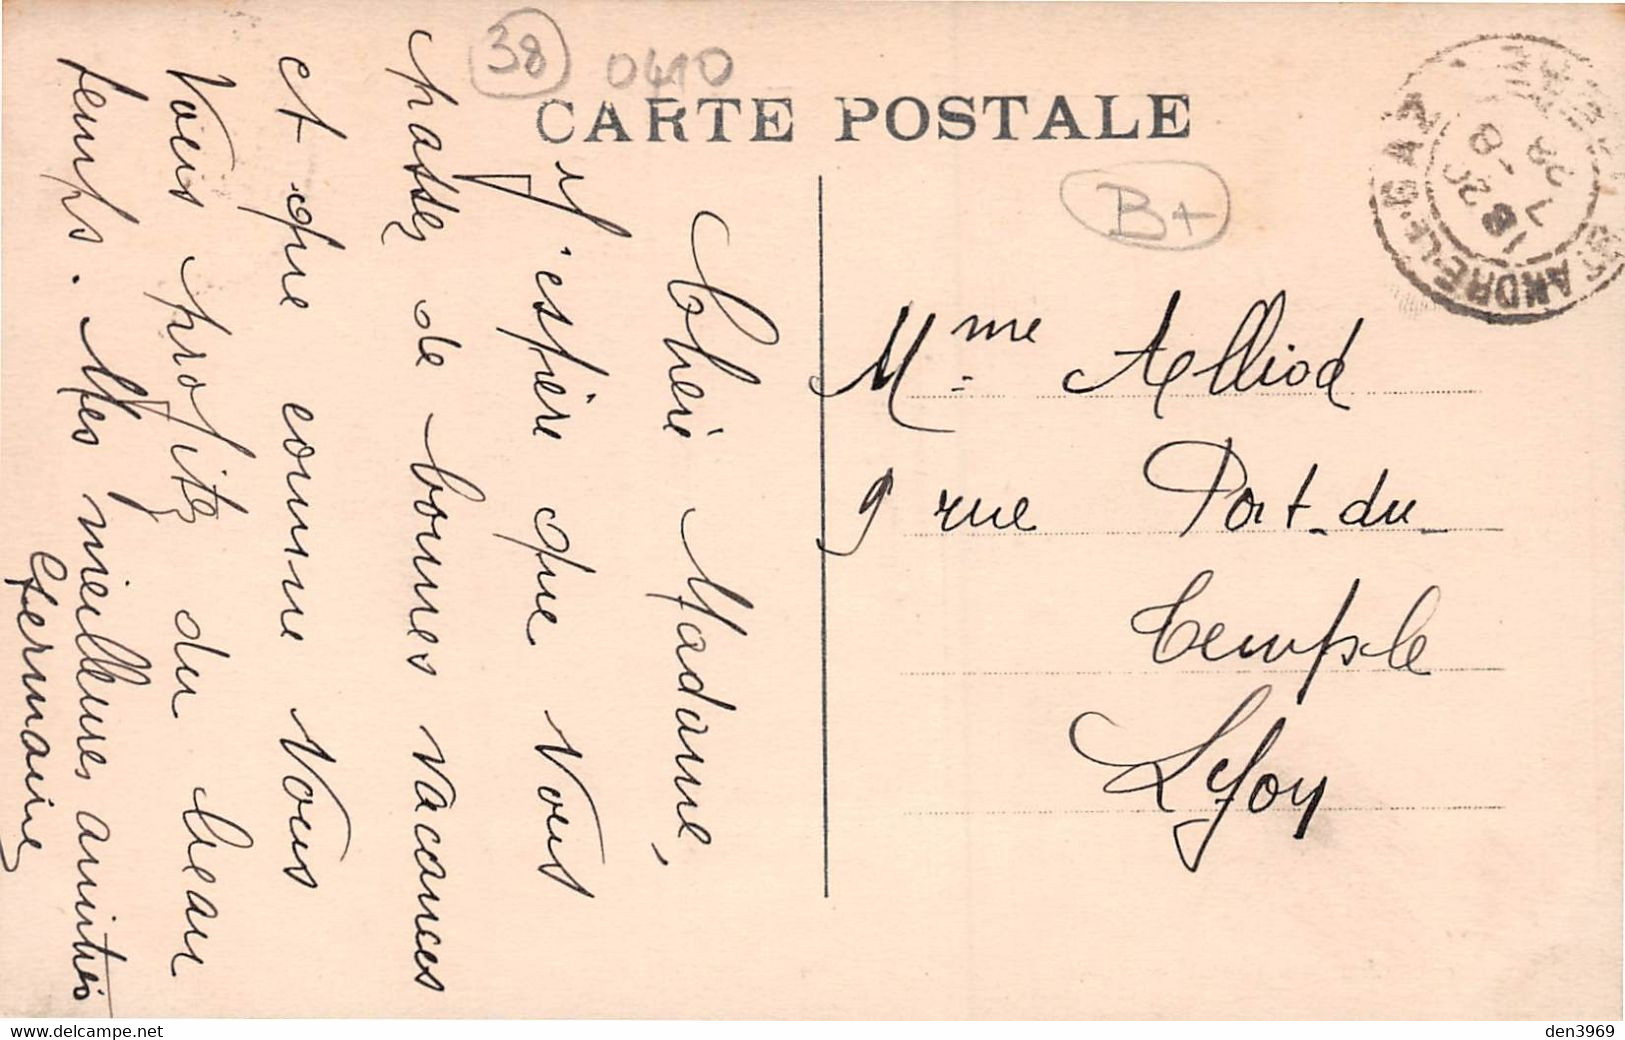 38
0410
CARTE POSTALE
B+
ST ANDRE-LE-GAZ
Chère Madame,
J'espère que vous
passez de bonnes vacances
et que comme nous
vous profitez du beau
temps. Mes meilleures amitiés
Germaine
Mme Alliod
9 rue Port-du-
Temple
Lyon
den3969